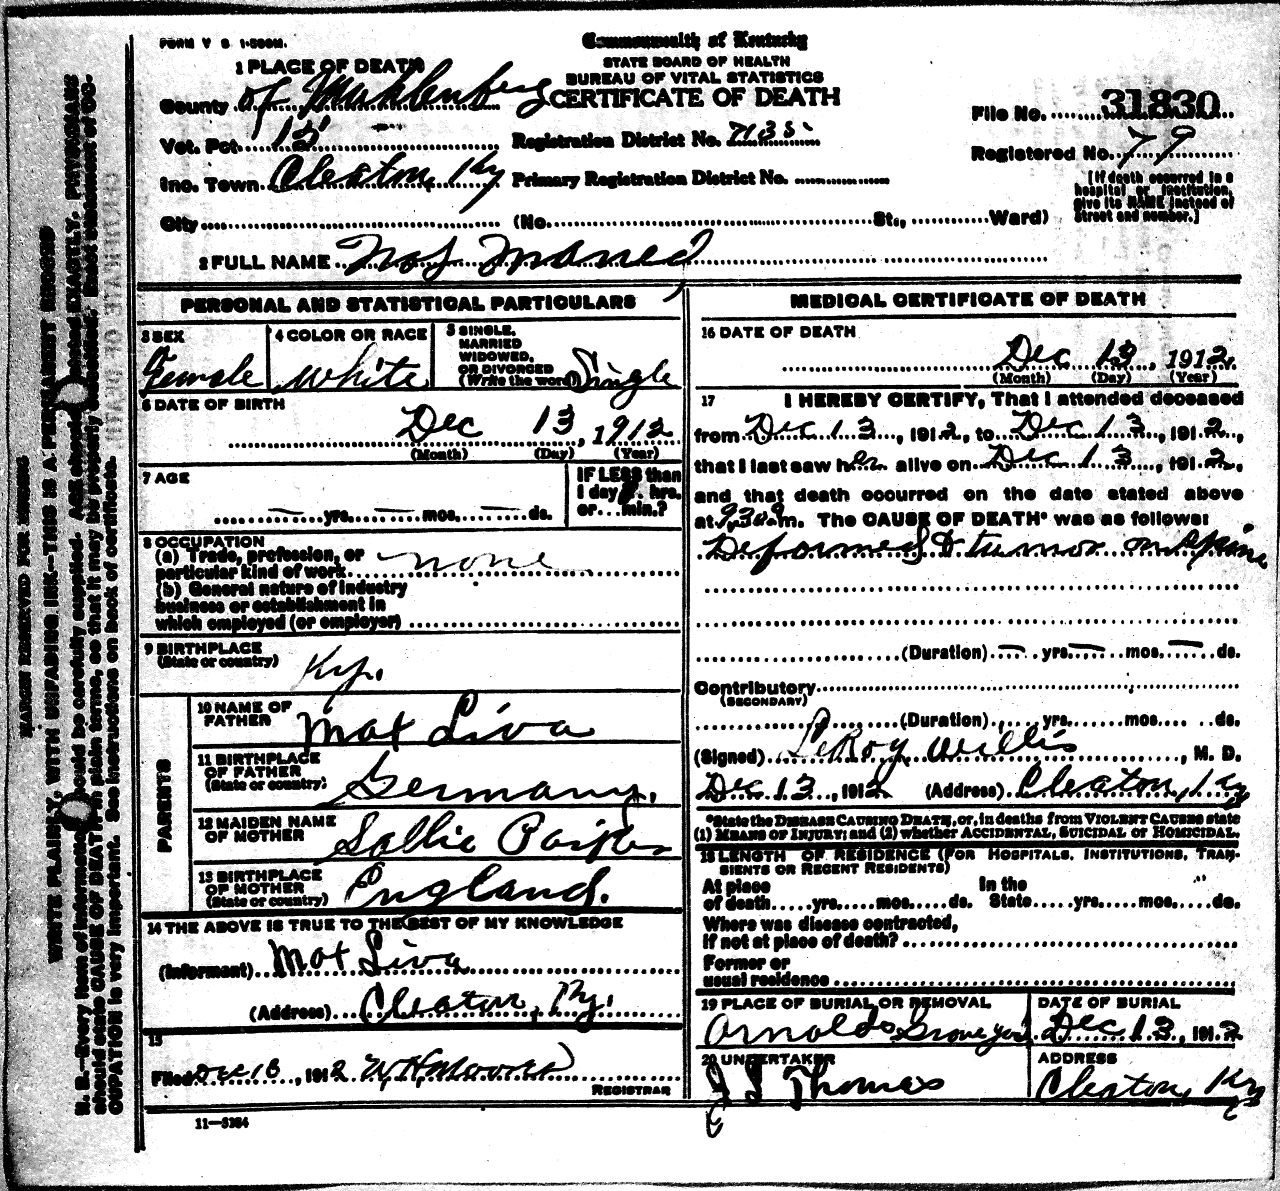 FORM V S 1-500M.
Commonwealth of Kentucky
STATE BOARD OF HEALTH
BUREAU OF VITAL STATISTICS
CERTIFICATE OF DEATH
1 PLACE OF DEATH
County of Muhlenberg
Vot. Pct. 15
Inc. Town Cleaton, Ky
City
Registration District No. 7135
Primary Registration District No.
(No. St., Ward)
File No. 31830
Registered No. 79
[If death occurred in a
hospital or institution,
give its NAME instead of
street and number.]
2 FULL NAME Not Named
PERSONAL AND STATISTICAL PARTICULARS
3 SEX
Female
4 COLOR OR RACE
White
5 SINGLE,
MARRIED
WIDOWED,
OR DIVORCED
(Write the word) Single
6 DATE OF BIRTH
Dec 13, 1912
(Month) (Day) (Year)
7 AGE
— yrs. — mos. — ds.
IF LESS than
1 day, hrs.
or min.?
8 OCCUPATION
(a) Trade, profession, or
particular kind of work none
(b) General nature of industry
business or establishment in
which employed (or employer)
9 BIRTHPLACE
(State or country) Ky.
PARENTS
10 NAME OF
FATHER Max Liva
11 BIRTHPLACE
OF FATHER
(State or country) Germany.
12 MAIDEN NAME
OF MOTHER Sallie
13 BIRTHPLACE
OF MOTHER
(State or country) England.
14 THE ABOVE IS TRUE TO THE BEST OF MY KNOWLEDGE
(Informant) Max Liva
(Address) Cleaton, Ky.
15
Filed Dec 18, 1912 W H
REGISTRAR
11—5184
MEDICAL CERTIFICATE OF DEATH
16 DATE OF DEATH
Dec 13, 1912
(Month) (Day) (Year)
17 I HEREBY CERTIFY, That I attended deceased
from Dec 13, 1912, to Dec 13, 1912,
that I last saw her alive on Dec 13, 1912,
and that death occurred on the date stated above
at 9.30 a m. The CAUSE OF DEATH* was as follows:
Deformed & tumor on spine
(Duration) — yrs. — mos. — ds.
Contributory
(SECONDARY)
(Duration) yrs. mos. ds.
(Signed) LeRoy Willis, M. D.
Dec 13, 1912 (Address) Cleaton, Ky
*State the DISEASE CAUSING DEATH, or, in deaths from VIOLENT CAUSES state
(1) MEANS OF INJURY; and (2) whether ACCIDENTAL, SUICIDAL or HOMICIDAL.
18 LENGTH OF RESIDENCE (FOR HOSPITALS, INSTITUTIONS, TRAN-
SIENTS OR RECENT RESIDENTS)
At place In the
of death yrs. mos. ds. State yrs. mos. ds.
Where was disease contracted,
If not at place of death?
Former or
usual residence
19 PLACE OF BURIAL OR REMOVAL
Arnolds Grove yd
DATE OF BURIAL
Dec 13, 1912
20 UNDERTAKER
J S Thomas
ADDRESS
Cleaton, Ky
MARGIN RESERVED FOR BINDING
WRITE PLAINLY, WITH UNFADING INK—THIS IS A PERMANENT RECORD
N. B.—Every item of information should be carefully supplied. AGE should be stated EXACTLY. PHYSICIANS
should state CAUSE OF DEATH in plain terms, so that it may be properly classified. Exact statement of OC-
CUPATION is very important. See instructions on back of certificate.